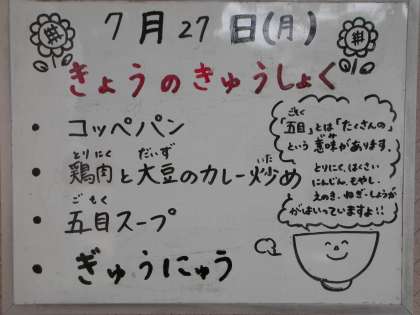 7月27日(月)
きょうのきゅうしょく
・コッペパン
とりにく だいず いた
・鶏肉と大豆のカレー炒め
ごもく
・五目スープ
・ぎゅうにゅう
ごもく
「五目」とは「たくさんの」
いみ
という意味があります。
とりにく、はくさい
にんじん、もやし、
えのき、ねぎ、しょうが
がはいっていますよ!!